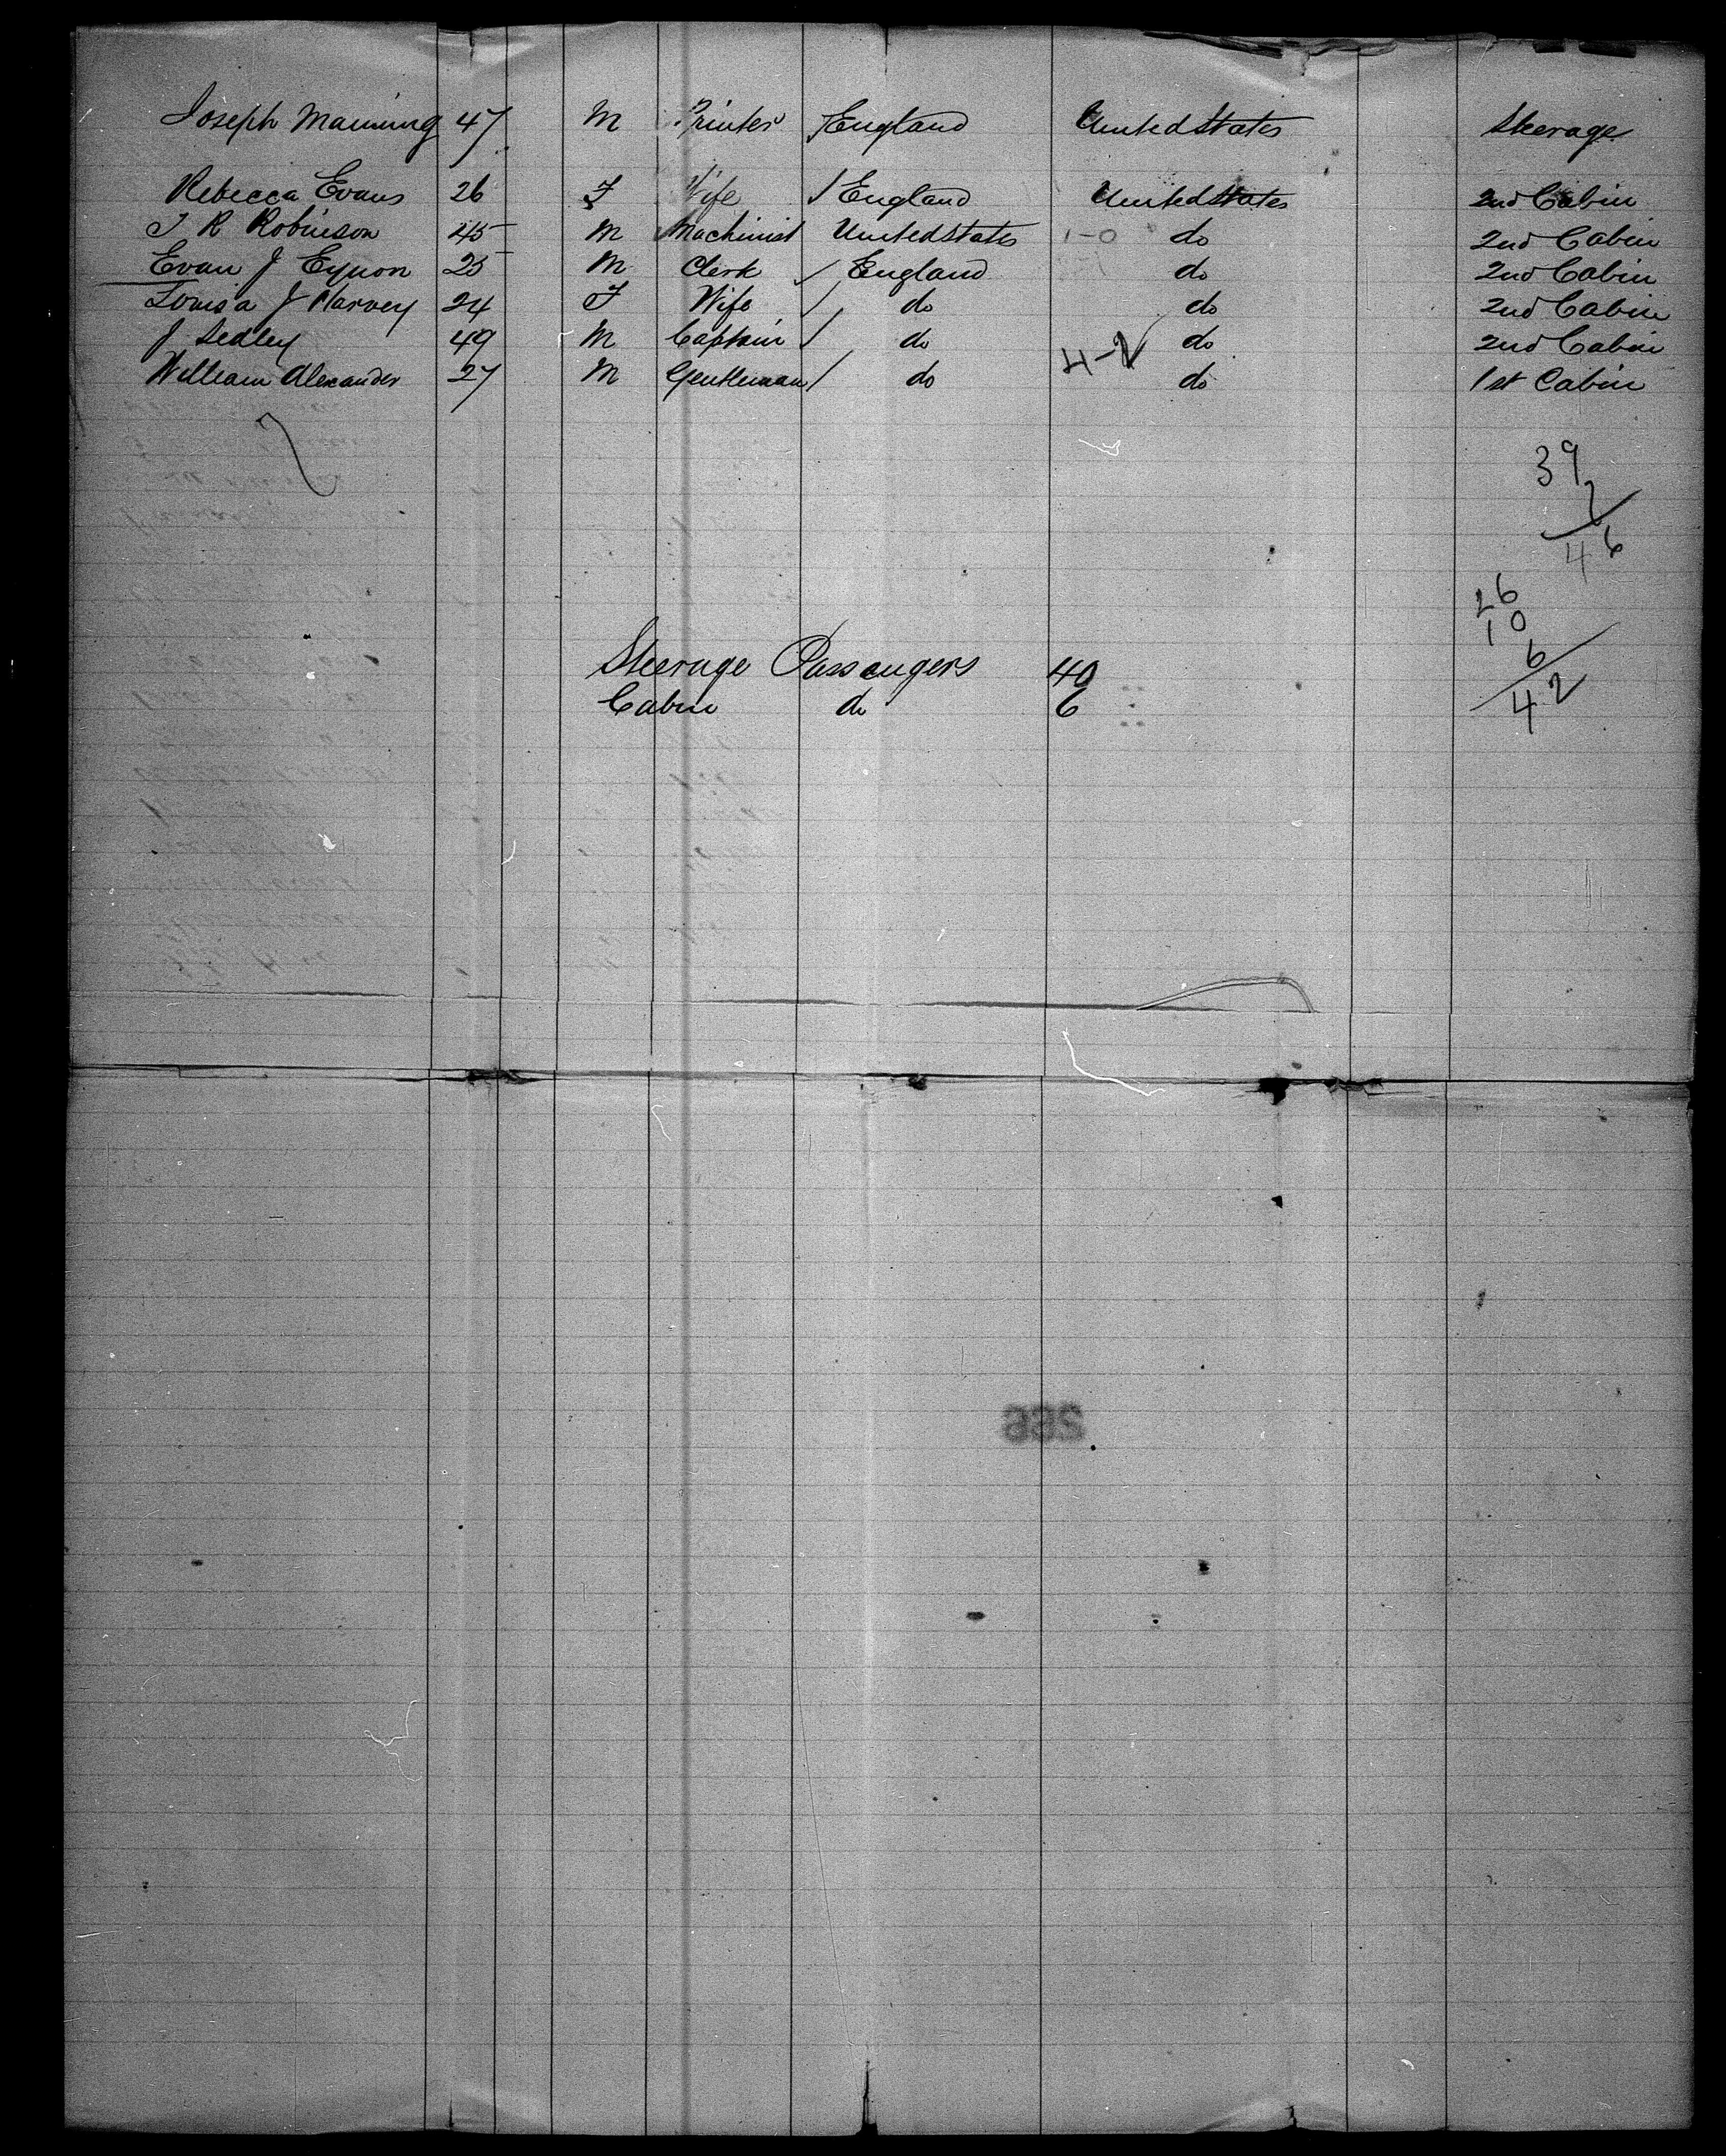 Joseph Manning 47 M Printer England United States Steerage
Rebecca Evans 26 F Wife / England United States 2nd Cabin
T R Robinson 45 M Machinist United States 1-0 do 2nd Cabin
Evan J Eynon 25 M Clerk / England do 2nd Cabin
Louisa J Harvey 24 F Wife / do do 2nd Cabin
J Sedley 49 M Captain / do 4-2 do 2nd Cabin
William Alexander 27 M Gentleman / do do 1st Cabin
7
39
7
46
26
10
6
42
Steerage Passengers 40
Cabin do 6
see